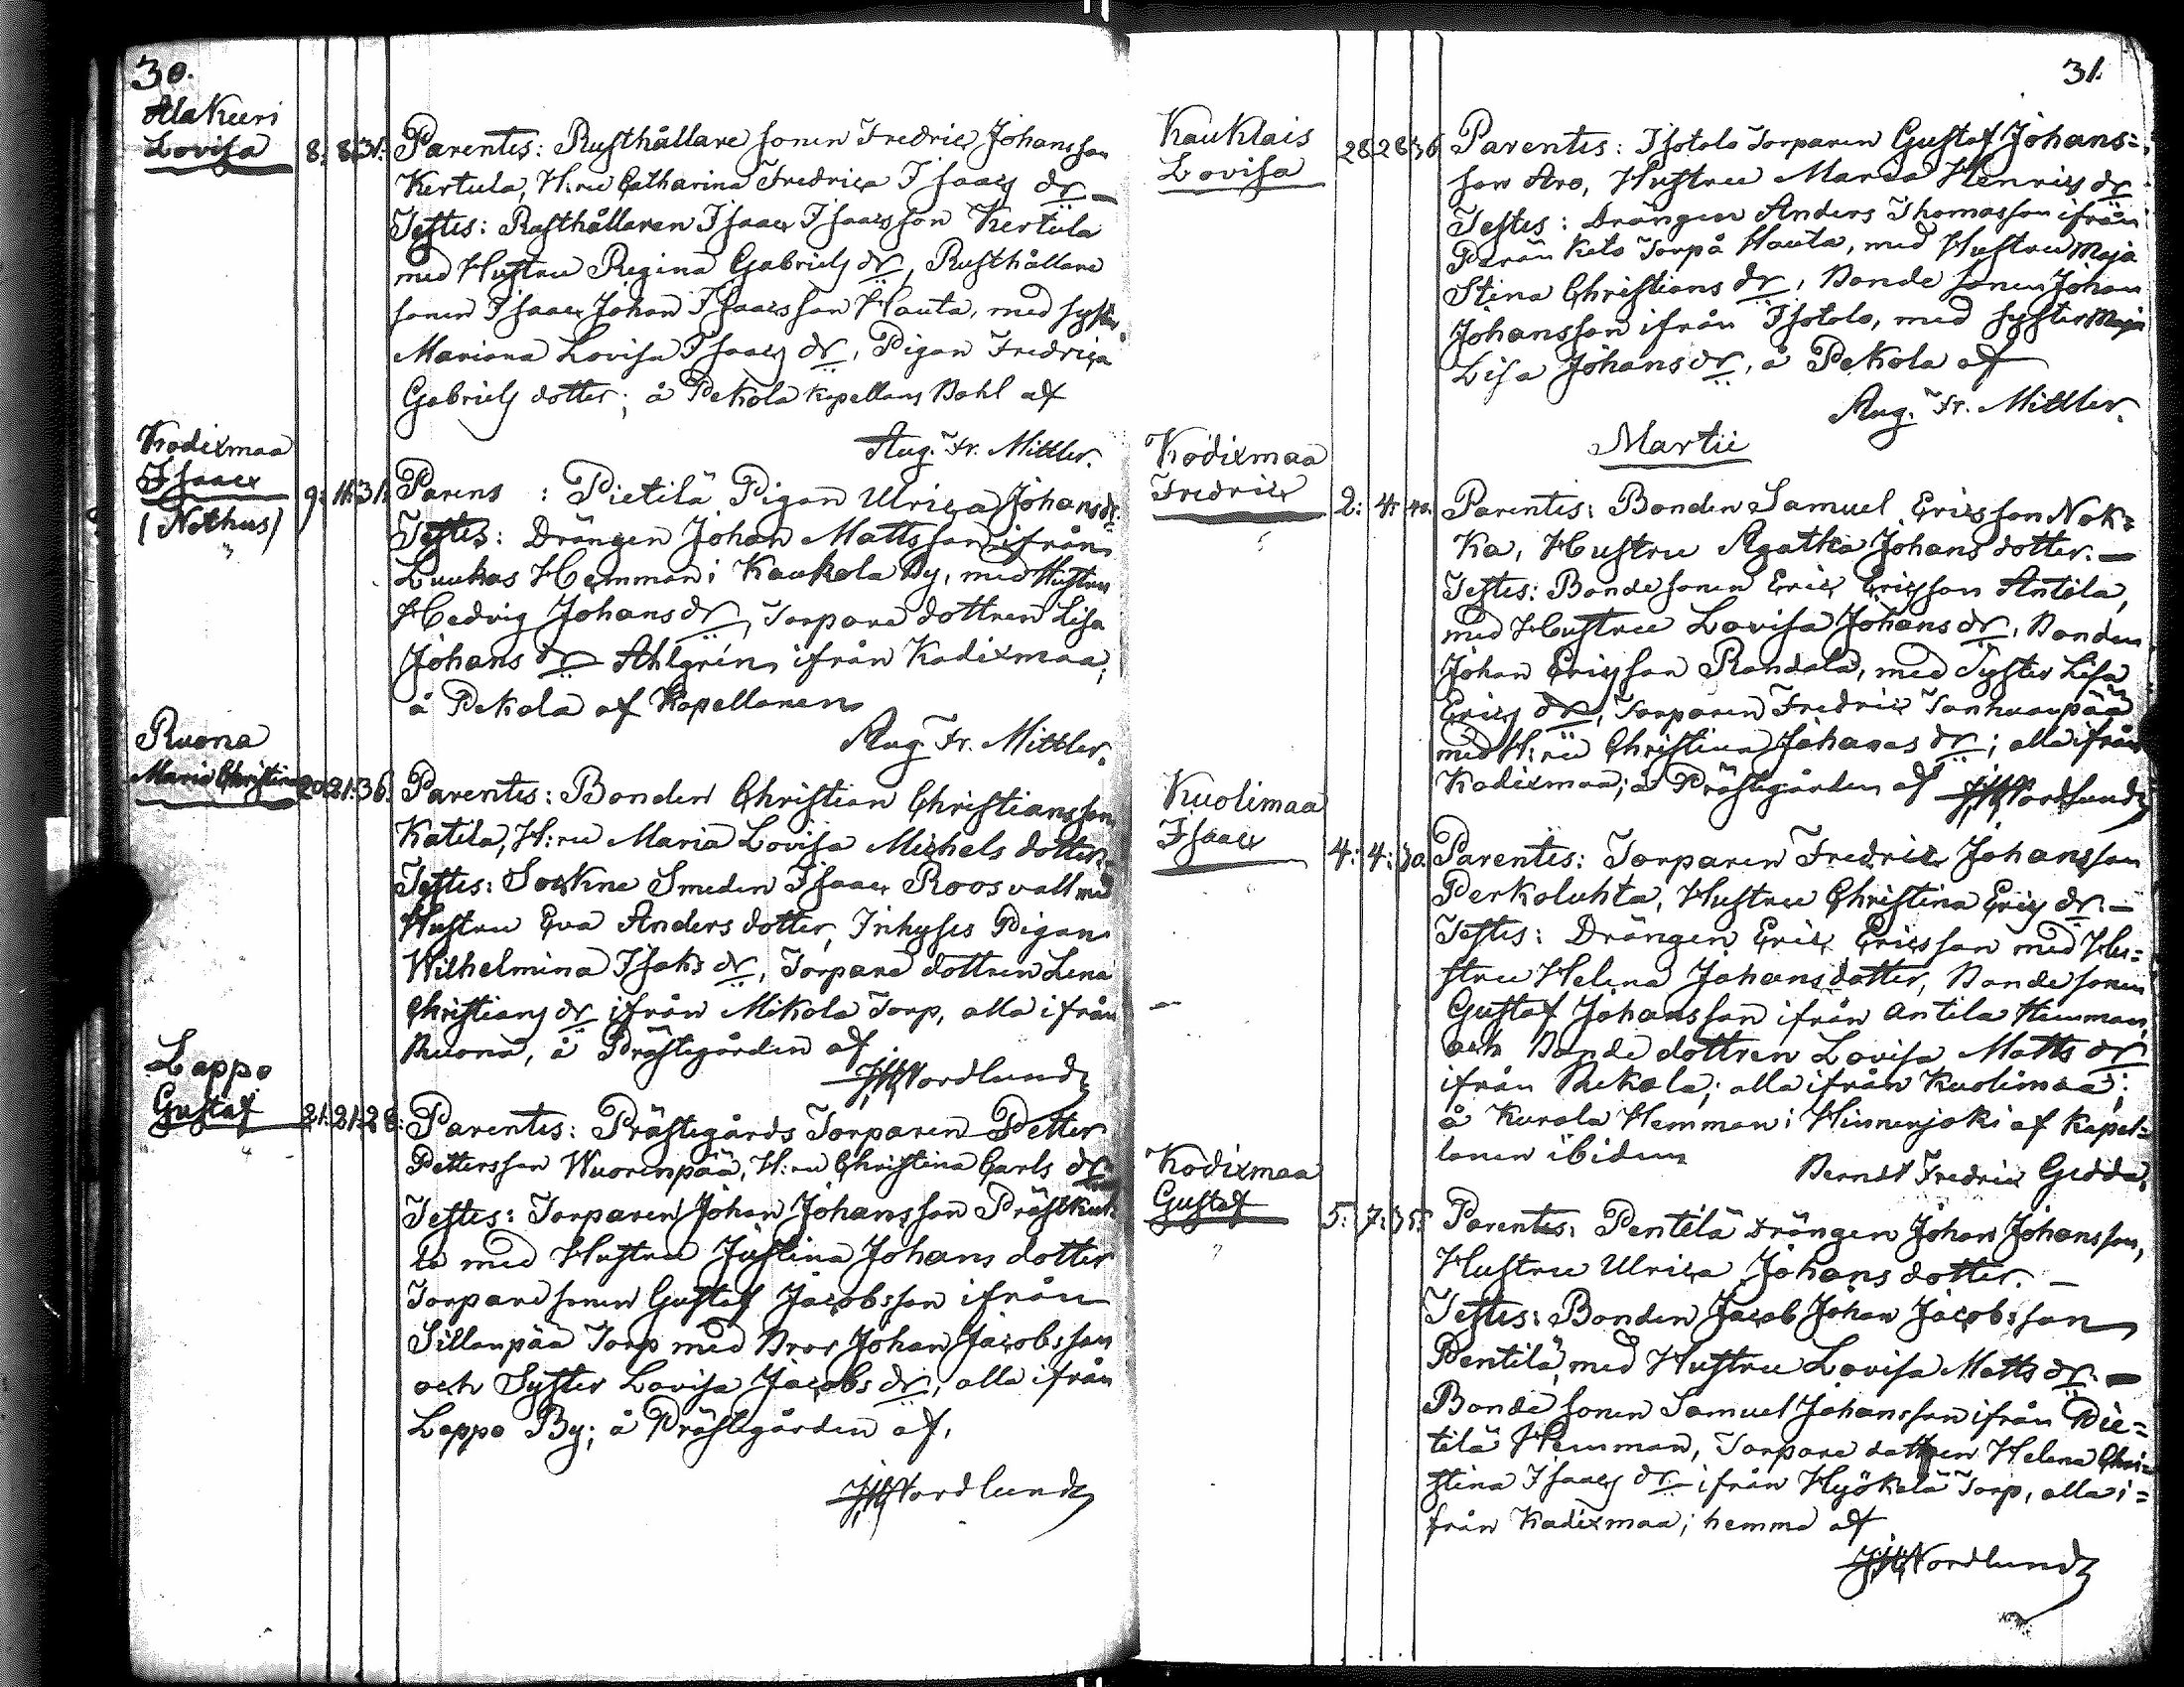 30.
Ala Kieri
Lovisa 8. 8. 31. Parentes: Rusthållare sonen Fredric Johansson
Kertula, H:ru Catharina Fredrica Isaacs dr. —
Testes: Rusthållaren Isaac Isaacsson Kertula
med Hustru Regina Gabriels dr, Rusthållare
sonen Isaac Johan Isaacsson Hauta, med syster
Mariana Lovisa Isaacs dr, Pigan Fredrica
Gabriels dotter; å Pekola Kapellans Bohl af
Aug. Fr. Mittler.
Kodixmaa
Isaac
(Nothus) 9. 11. 31. Parens : Pietilä Pigan Ulrica Johans dr.
Testes: Drängen Johan Mattsson ifrån
Luukas Hemman i Kaukola By, med Hustru
Hedvig Johans dr, Torpare dottren Lisa
Johans dr Ahlgrén, ifrån Kodixmaa;
å Pekola af Kapellanen
Aug. Fr. Mittler.
Ruona
Maria Christina 20. 21. 36. Parentes: Bonden Christian Christiansson
Katila, H:ru Maria Lovisa Michels dotter.
Testes: Sockne Smeden Isaac Roosvall med
Hustru Eva Anders dotter, Inhyses Pigan
Wilhelmina Isaks dr, Torpare dottren Lena
Christians dr ifrån Mikola Torp, alla ifrån
Ruona, å Prästegården af
Nordlund
Lappo
Gustaf 21. 21. 28. Parentes: Prästegårds Torparen Petter
Pettersson Wuorenpää, H:ru Christina Carls dr
Testes: Torparen Johan Johansson Prästkuk
la med Hustru Justina Johans dotter
Torpare sonen Gustaf Jacobsson ifrån
Sillanpää Torp med Bror Johan Jacobsson
och Syster Lovisa Jacobs dr, alla ifrån
Lappo By; å Prästegården af.
Nordlund
31.
Kauklais
Lovisa 28 28 36 Parentes: Isotalo Torparen Gustaf Johans=
son Aro, Hustru Maria Henrics dr.
Testes: Drängen Anders Thomasson ifrån
Perän Keto Torp å Hauta, med Hustru Maja
Stina Christians dr, Bonde sonen Johan
Johansson ifrån Isotalo, med syster Maja
Lisa Johans dr, å Pekola af
Aug. Fr. Mittler.
Martii
Kodixmaa
Fredric 2. 4. 40. Parentes: Bonden Samuel Ericsson Nok=
ka, Hustru Agatha Johans dotter. —
Testes: Bonde sonen Eric Ericsson Antila,
med Hustru Lovisa Johans dr, Bonden
Johan Ericsson Randala, med Syster Lisa
Erics dr, Torparen Fredric Tanhuanpää
med H:ru Christina Johans dr; alla ifrån
Kodixmaa; å Prästegården af Nordlund
Kuolimaa
Isaac 4. 4. 30. Parentes: Torparen Fredric Johansson
Perkoluhta, Hustru Christina Erics dr. —
Testes: Drängen Eric Ericsson med Hu=
stru Helena Johans dotter, Bonde sonen
Gustaf Johansson ifrån Antila Hemman,
och Bonde dottren Lovisa Matts dr
ifrån Rekola; alla ifrån Kuolimaa;
å Kurala Hemman i Hinnerjoki af Kapel=
lanen ibidem
Berndt Fredric Gedda.
Kodixmaa
Gustaf 5. 7. 35. Parentes: Pentilä drängen Johan Johansson,
Hustru Ulrica Johans dotter. —
Testes: Bonden Jacob Johan Jacobsson
Pentilä, med Hustru Lovisa Matts dr. —
Bonde sonen Samuel Johansson ifrån Pie=
tilä Hemman, Torpare dottren Helena Chri=
stina Isaacs dr ifrån Hyökelä Torp, alla i=
från Kodixmaa; hemma af
Nordlund